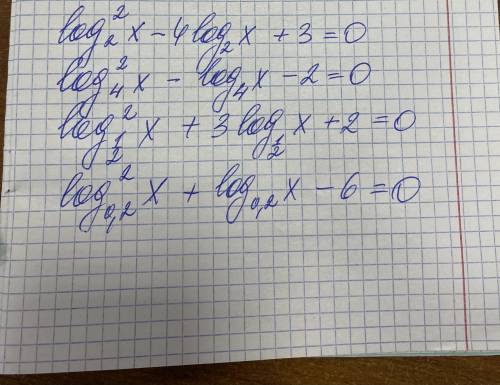 log₂²x − 4log₂x + 3 = 0
log₄²x − log₄x − 2 = 0
log²_{1/2} x + 3log_{1/2} x + 2 = 0
log²_{0,2} x + log_{0,2} x − 6 = 0